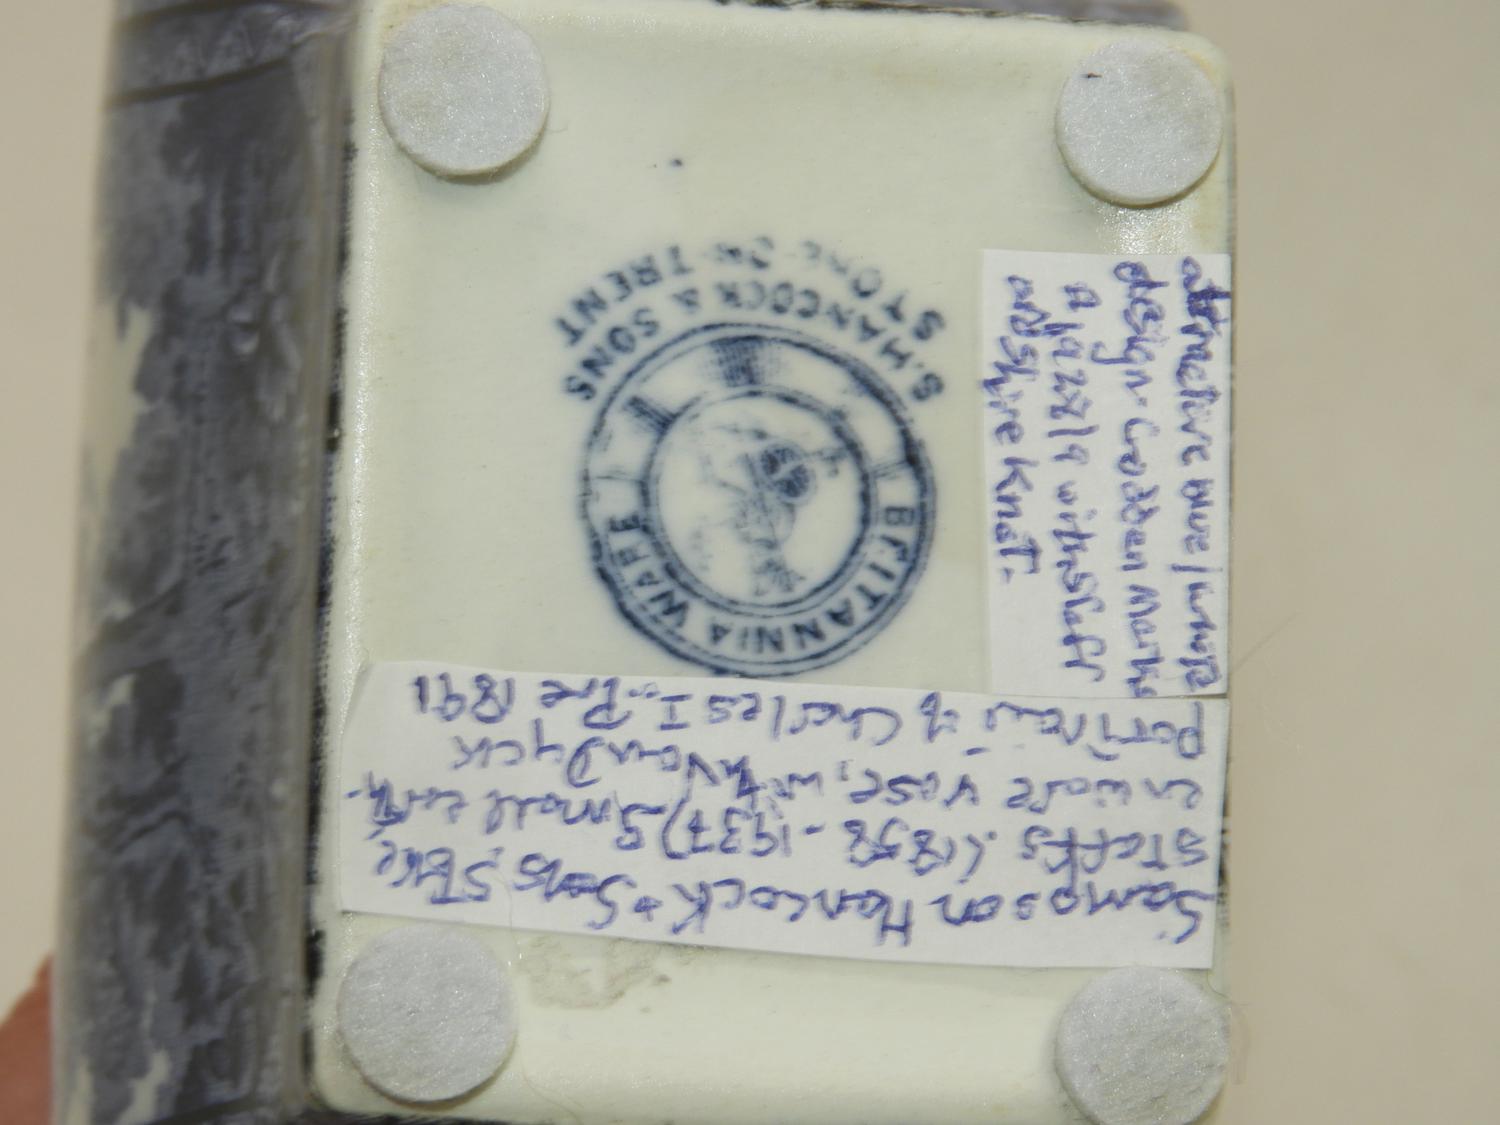 BRITANNIA WARE
S. HANCOCK & SONS
STOKE-ON-TRENT
Sampson Hancock & Sons, Stoke
Staffs. (1858-1937) Small earth-
enware vase, with VanDyck
portrait of Charles I. Pre 1891
attractive blue/white
design. Godden mark
with Staff
ordshire Knot.